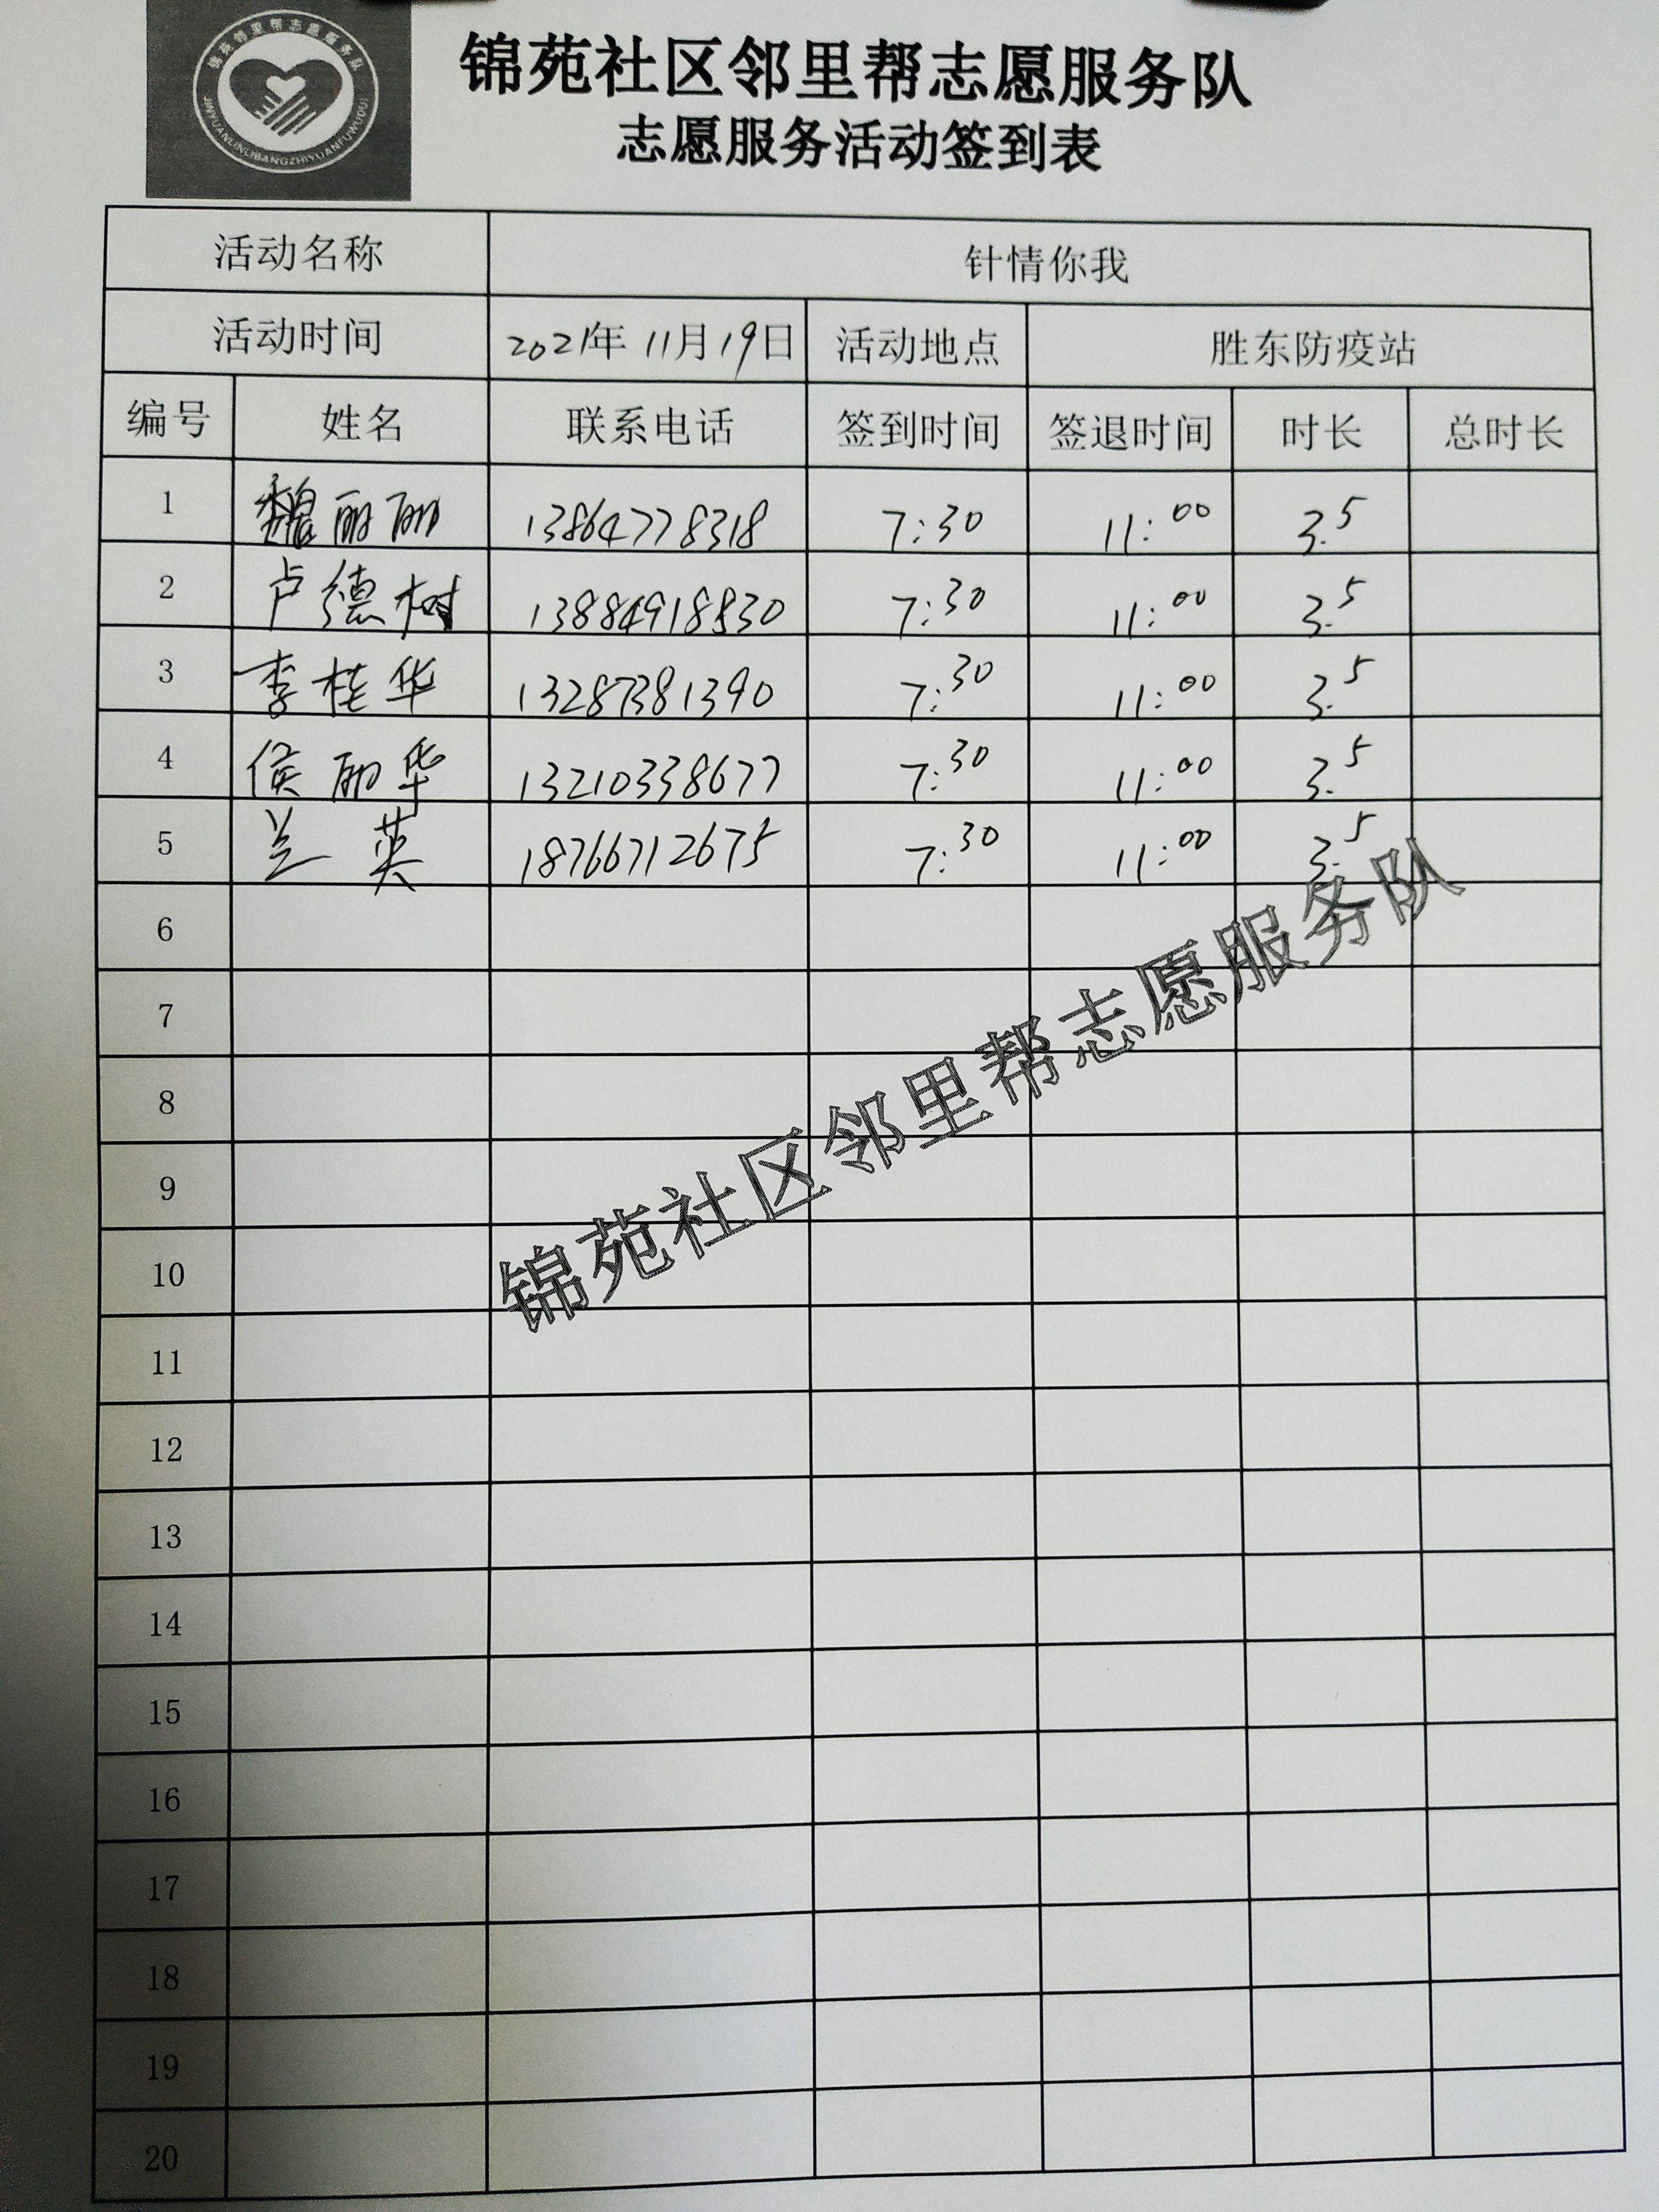 锦苑邻里帮志愿服务队
JINYUANLINLIBANGZHIYUANFUWUDUI
锦苑社区邻里帮志愿服务队
志愿服务活动签到表
活动名称 针情你我
活动时间 2021年11月19日 活动地点 胜东防疫站
编号 姓名 联系电话 签到时间 签退时间 时长 总时长
1 魏丽丽 13864778318 7:30 11:00 3.5
2 卢德树 13884918830 7:30 11:00 3.5
3 李桂华 13287381390 7:30 11:00 3.5
4 侯丽华 13210338677 7:30 11:00 3.5
5 兰英 18766712675 7:30 11:00 3.5
6
7
8
9
10
11
12
13
14
15
16
17
18
19
20
锦苑社区邻里帮志愿服务队